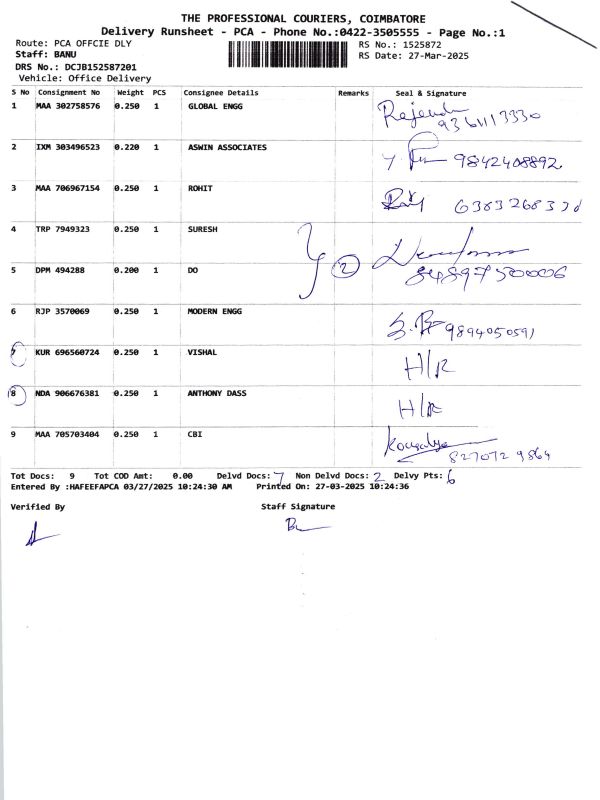 THE PROFESSIONAL COURIERS, COIMBATORE
Delivery Runsheet - PCA - Phone No.:0422-3505555 - Page No.:1
Route: PCA OFFCIE DLY RS No.: 1525872
Staff: BANU RS Date: 27-Mar-2025
DRS No.: DCJB152587201
Vehicle: Office Delivery
S No Consignment No Weight PCS Consignee Details Remarks Seal & Signature
1 MAA 302758576 0.250 1 GLOBAL ENGG
2 IXM 303496523 0.220 1 ASWIN ASSOCIATES 9842408892
3 MAA 706967154 0.250 1 ROHIT
4 TRP 7949323 0.250 1 SURESH
5 DPM 494288 0.200 1 DO 2
6 RJP 3570069 0.250 1 MODERN ENGG 9894050591
7 KUR 696560724 0.250 1 VISHAL H/R
8 NDA 906676381 0.250 1 ANTHONY DASS H/R
9 MAA 705703404 0.250 1 CBI 8270729864
Tot Docs: 9 Tot COD Amt: 0.00 Delvd Docs: 7 Non Delvd Docs: 2 Delvy Pts: 6
Entered By :HAFEEFAPCA 03/27/2025 10:24:30 AM Printed On: 27-03-2025 10:24:36
Verified By Staff Signature